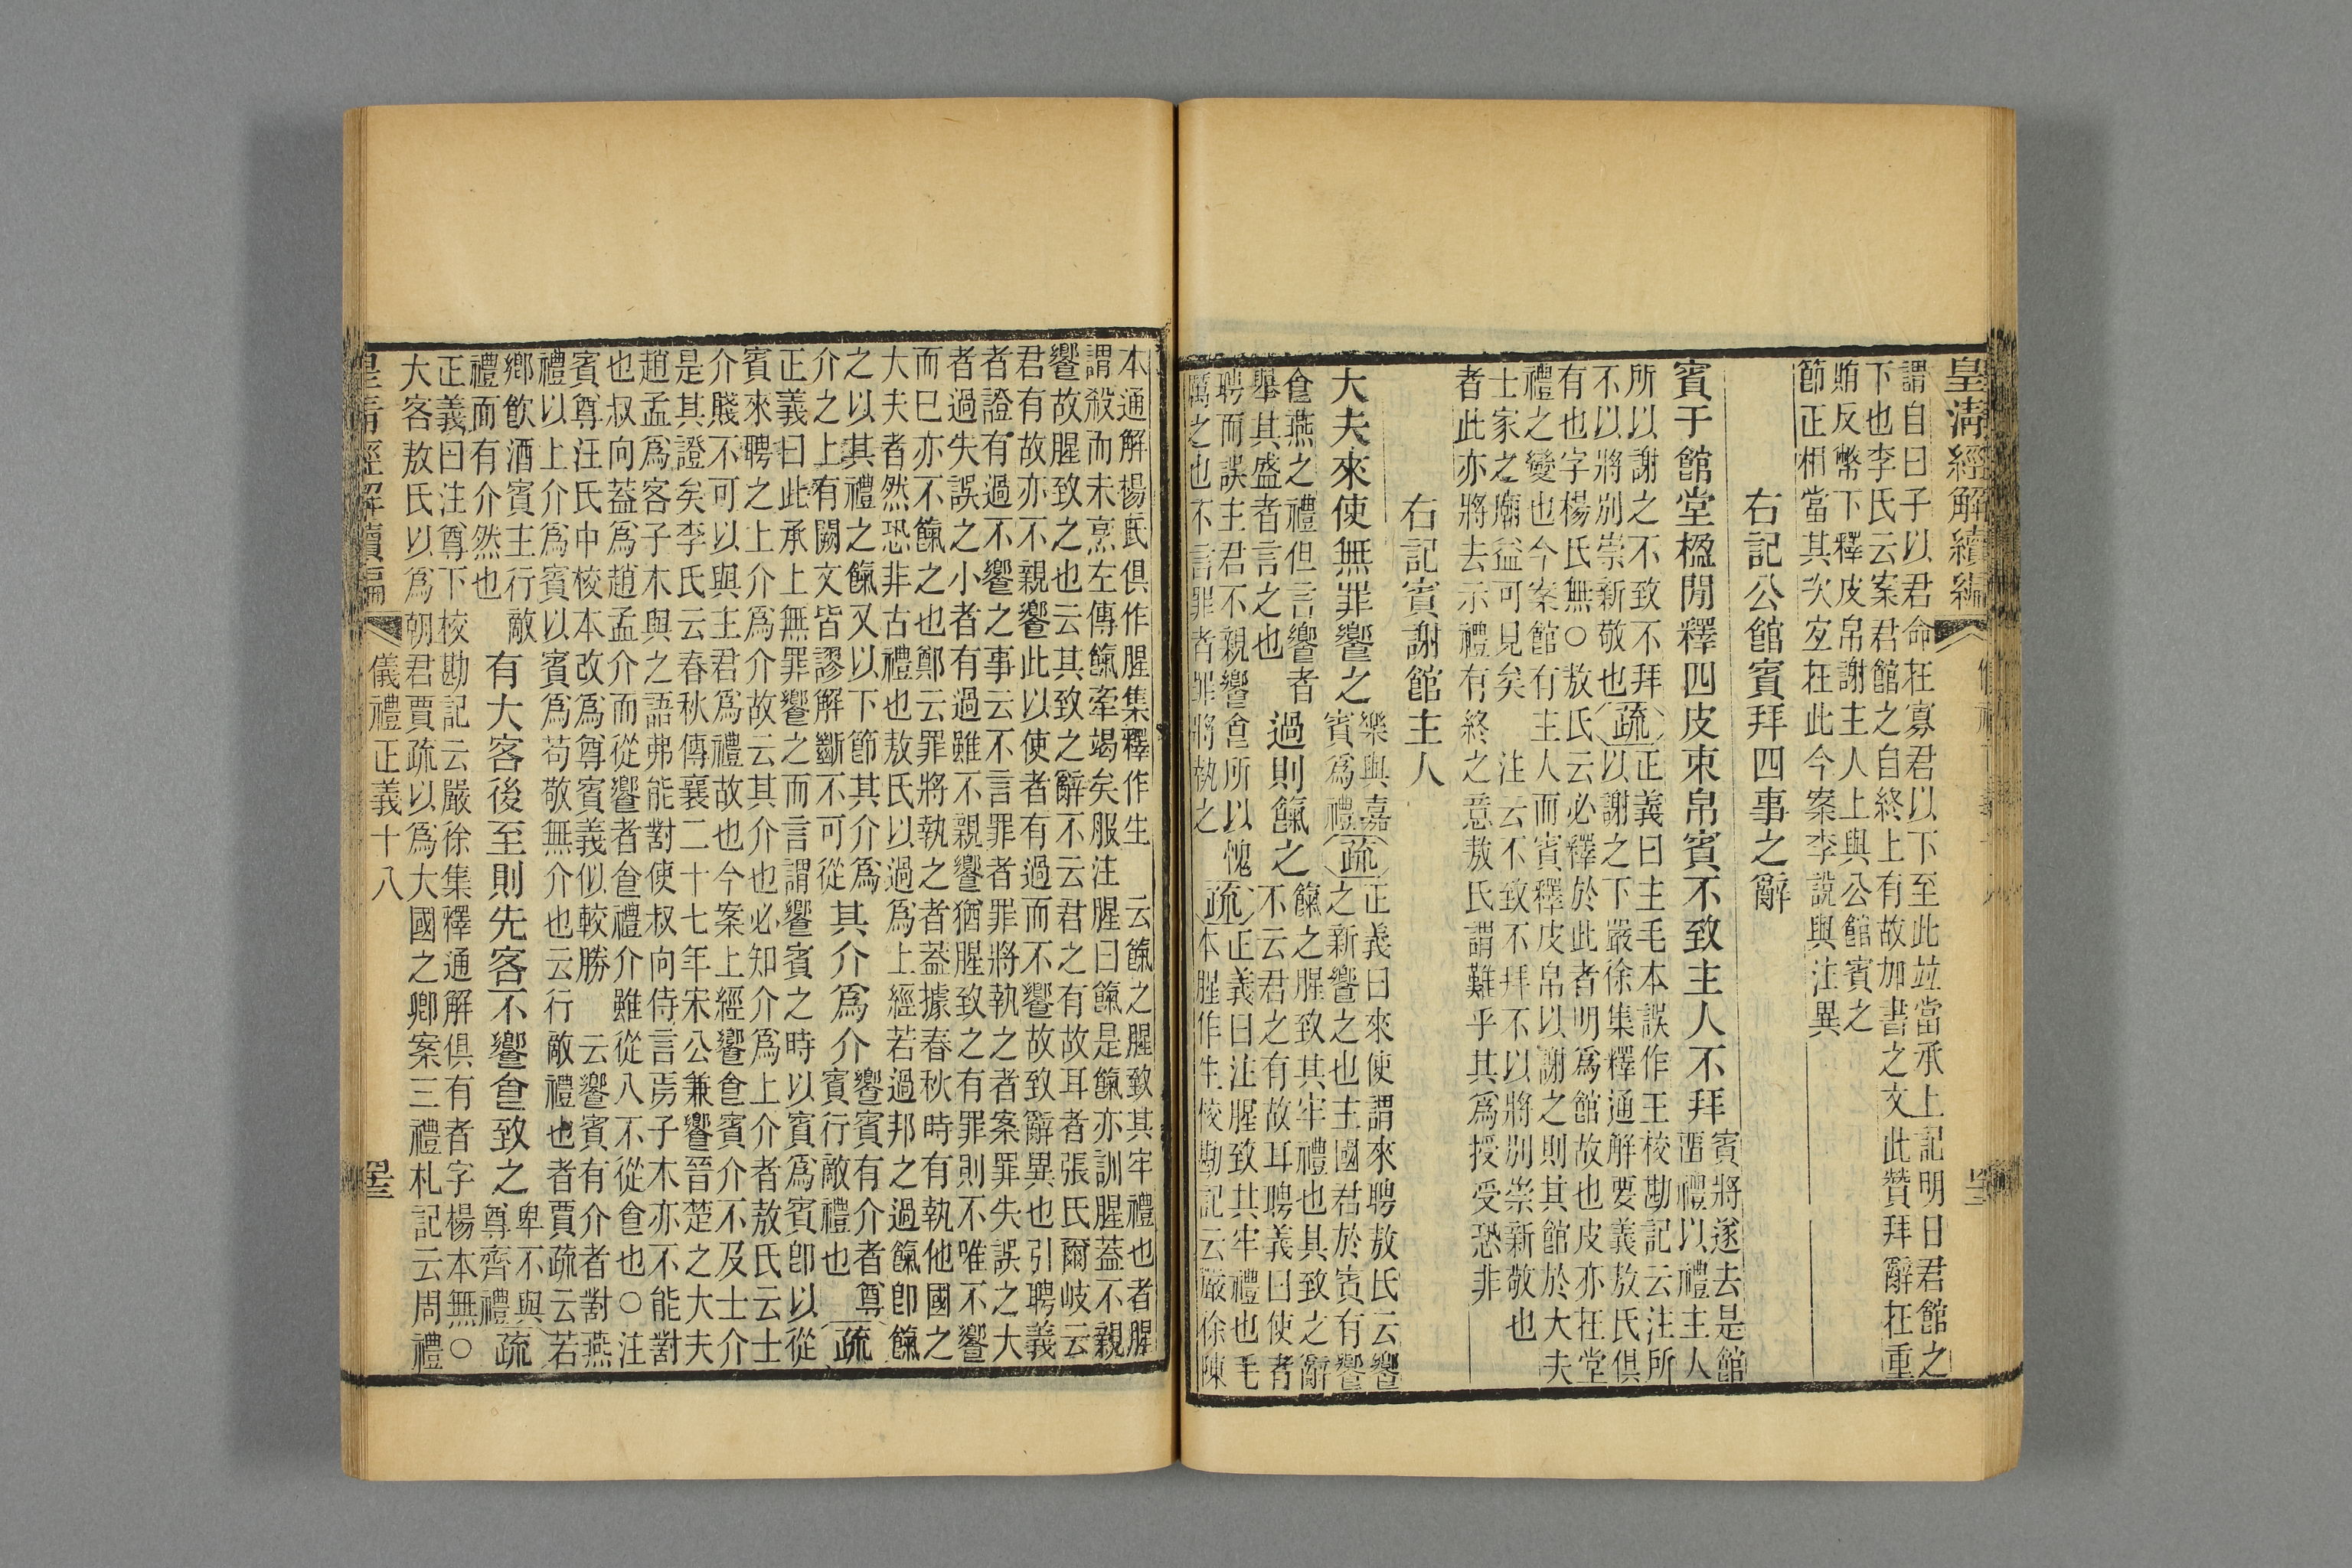 皇清經解續編
謂自曰子以君命在寡君以下至此竝當承上記明日君館之
下也李氏云案君館之自終上有故加書之文此贊拜辭在重
賄反幣下釋皮帛謝主人上與公館賓之
節正相當其次宜在此今案李說與注異
右記公館賓拜四事之辭
賓于館堂楹閒釋四皮束帛賓不致主人不拜
賓將遂去是館
畱禮以禮主人
所以謝之不致不拜
不以將别崇新敬也
疏
正義曰主毛本誤作王校勘記云注所
以謝之下嚴徐集釋通解要義敖氏俱
有也字楊氏無○敖氏云必釋於此者明爲館故也皮亦在堂
禮之變也今案館有主人而賓釋皮帛以謝之則其館於大夫
士家之廟益可見矣 注云不致不拜不以將别崇新敬也
者此亦將去示禮有終之意敖氏謂難乎其爲授受恐非
右記賓謝館主人
大夫來使無罪饗之
樂與嘉
賓爲禮
疏
正義曰來使謂來聘敖氏云饗
之新饗之也主國君於賓有饗
食燕之禮但言饗者
舉其盛者言之也
過則餼之
餼之腥致其牢禮也其致之辭
不云君之有故耳聘義曰使者
聘而誤主君不親饗食所以愧
厲之也不言罪者罪將執之
疏
正義曰注腥致其牢禮也毛
本腥作生校勘記云嚴徐陳
本通解楊氏俱作腥集釋作生 云餼之腥致其牢禮也者腥
謂殺而未烹左傳餼牽竭矣服注腥曰餼是餼亦訓腥蓋不親
饗故腥致之也云其致之辭不云君之有故耳者張氏爾岐云
君有故亦不親饗此以使者有過而不饗故致辭異也引聘義
者證有過不饗之事云不言罪者罪將執之者案罪失誤之大
者過失誤之小者有過雖不親饗猶腥致之有罪則不唯不饗
而巳亦不餼之也鄭云罪將執之者蓋據春秋時有執他國之
大夫者然恐非古禮也敖氏以過爲上經若過邦之過餼卽餼
之以其禮之餼又以下節其介爲
介之上有闕文皆謬解斷不可從
其介爲介
饗賓有介者尊
賓行敵禮也
疏
正義曰此承上無罪饗之而言謂饗賓之時以賓爲賓卽以從
賓來聘之上介爲介故云其介也必知介爲上介者敖氏云士
介賤不可以與主君爲禮故也今案上經饗食賓介不及士介
是其證矣李氏云春秋傳襄二十七年宋公兼饗晉楚之大夫
趙孟爲客子木與之語弗能對使叔向侍言焉子木亦不能對
也叔向蓋爲趙孟介而從饗者食禮介雖從入不從食也○注
賓尊汪氏中校本改爲尊賓義似較勝 云饗賓有介者對燕
禮以上介爲賓以賓爲苟敬無介也云行敵禮也者賈疏云若
鄉飲酒賓主行敵
禮而有介然也
有大客後至則先客不饗食致之
卑不與
尊齊禮
疏
正義曰注尊下校勘記云嚴徐集釋通解俱有者字楊本無○
大客敖氏以爲朝君賈疏以爲大國之卿案三禮札記云周禮
皇清經解續編 儀禮正義十八